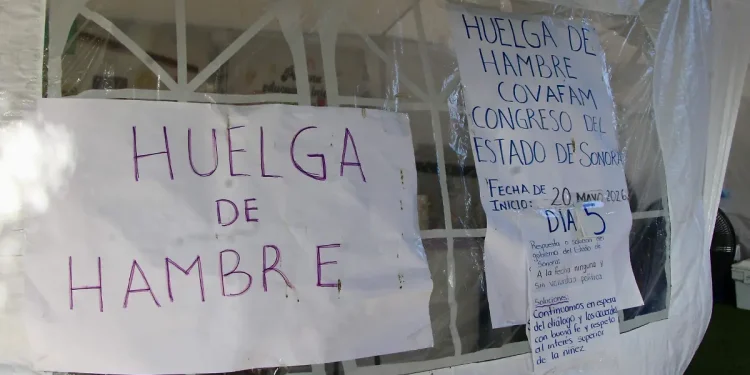 HUELGA
DE
HAMBRE
HUELGA DE
HAMBRE
COVAFAM
CONGRESO DEL
ESTADO DE SONORA
FECHA DE
INICIO: 20 MAYO 2026
DIA 5
Respuesta o solución del
gobierno del Estado de
Sonora:
A la fecha ninguna y
sin voluntad política
Soluciones:
Continuamos en espera
del diálogo y los acuerdos
con buena fe y respeto
al interés superior
de la niñez.